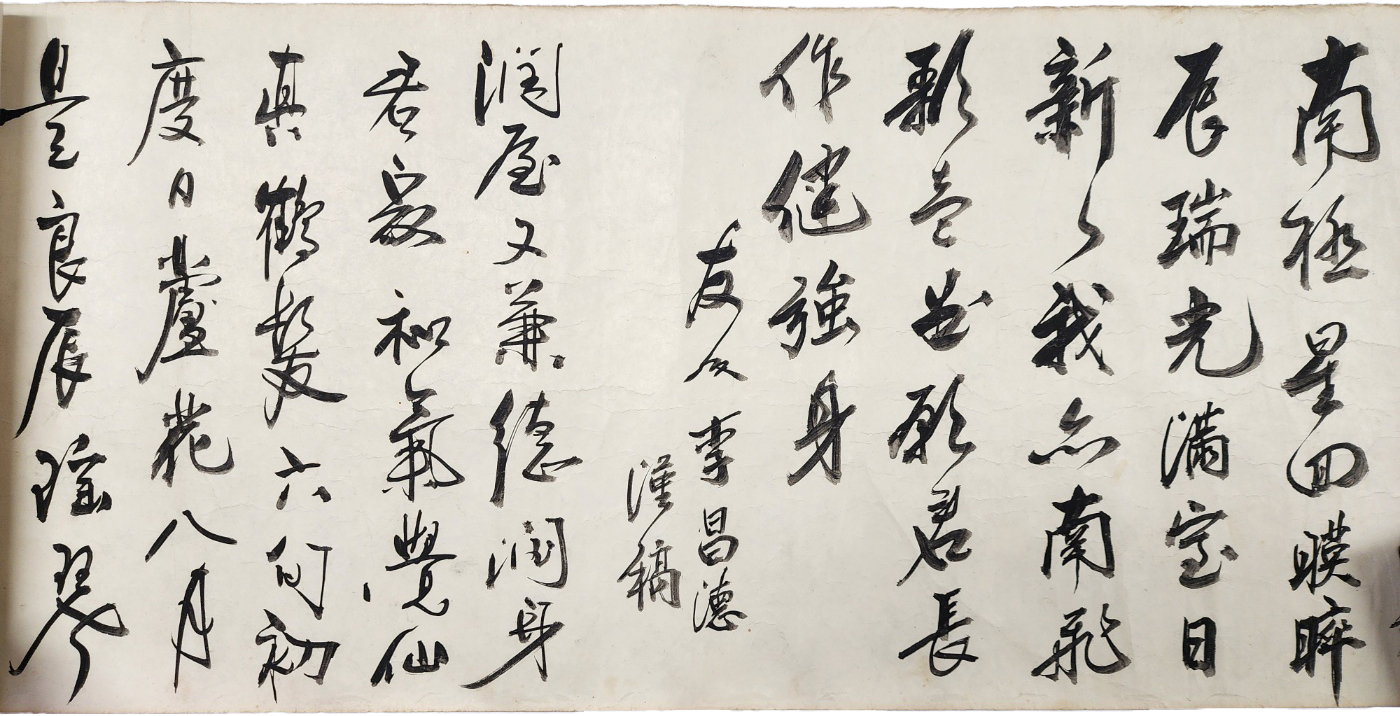 南極星回暎晬
辰瑞光滿室日
新々我亦南飛
歌壹曲願君長
作健強身
友人李昌德
謹稿
潤屋又兼德潤身
君最和氣覺仙
真鶴髮六旬初
度日蘆花八月
是良辰瑤琴